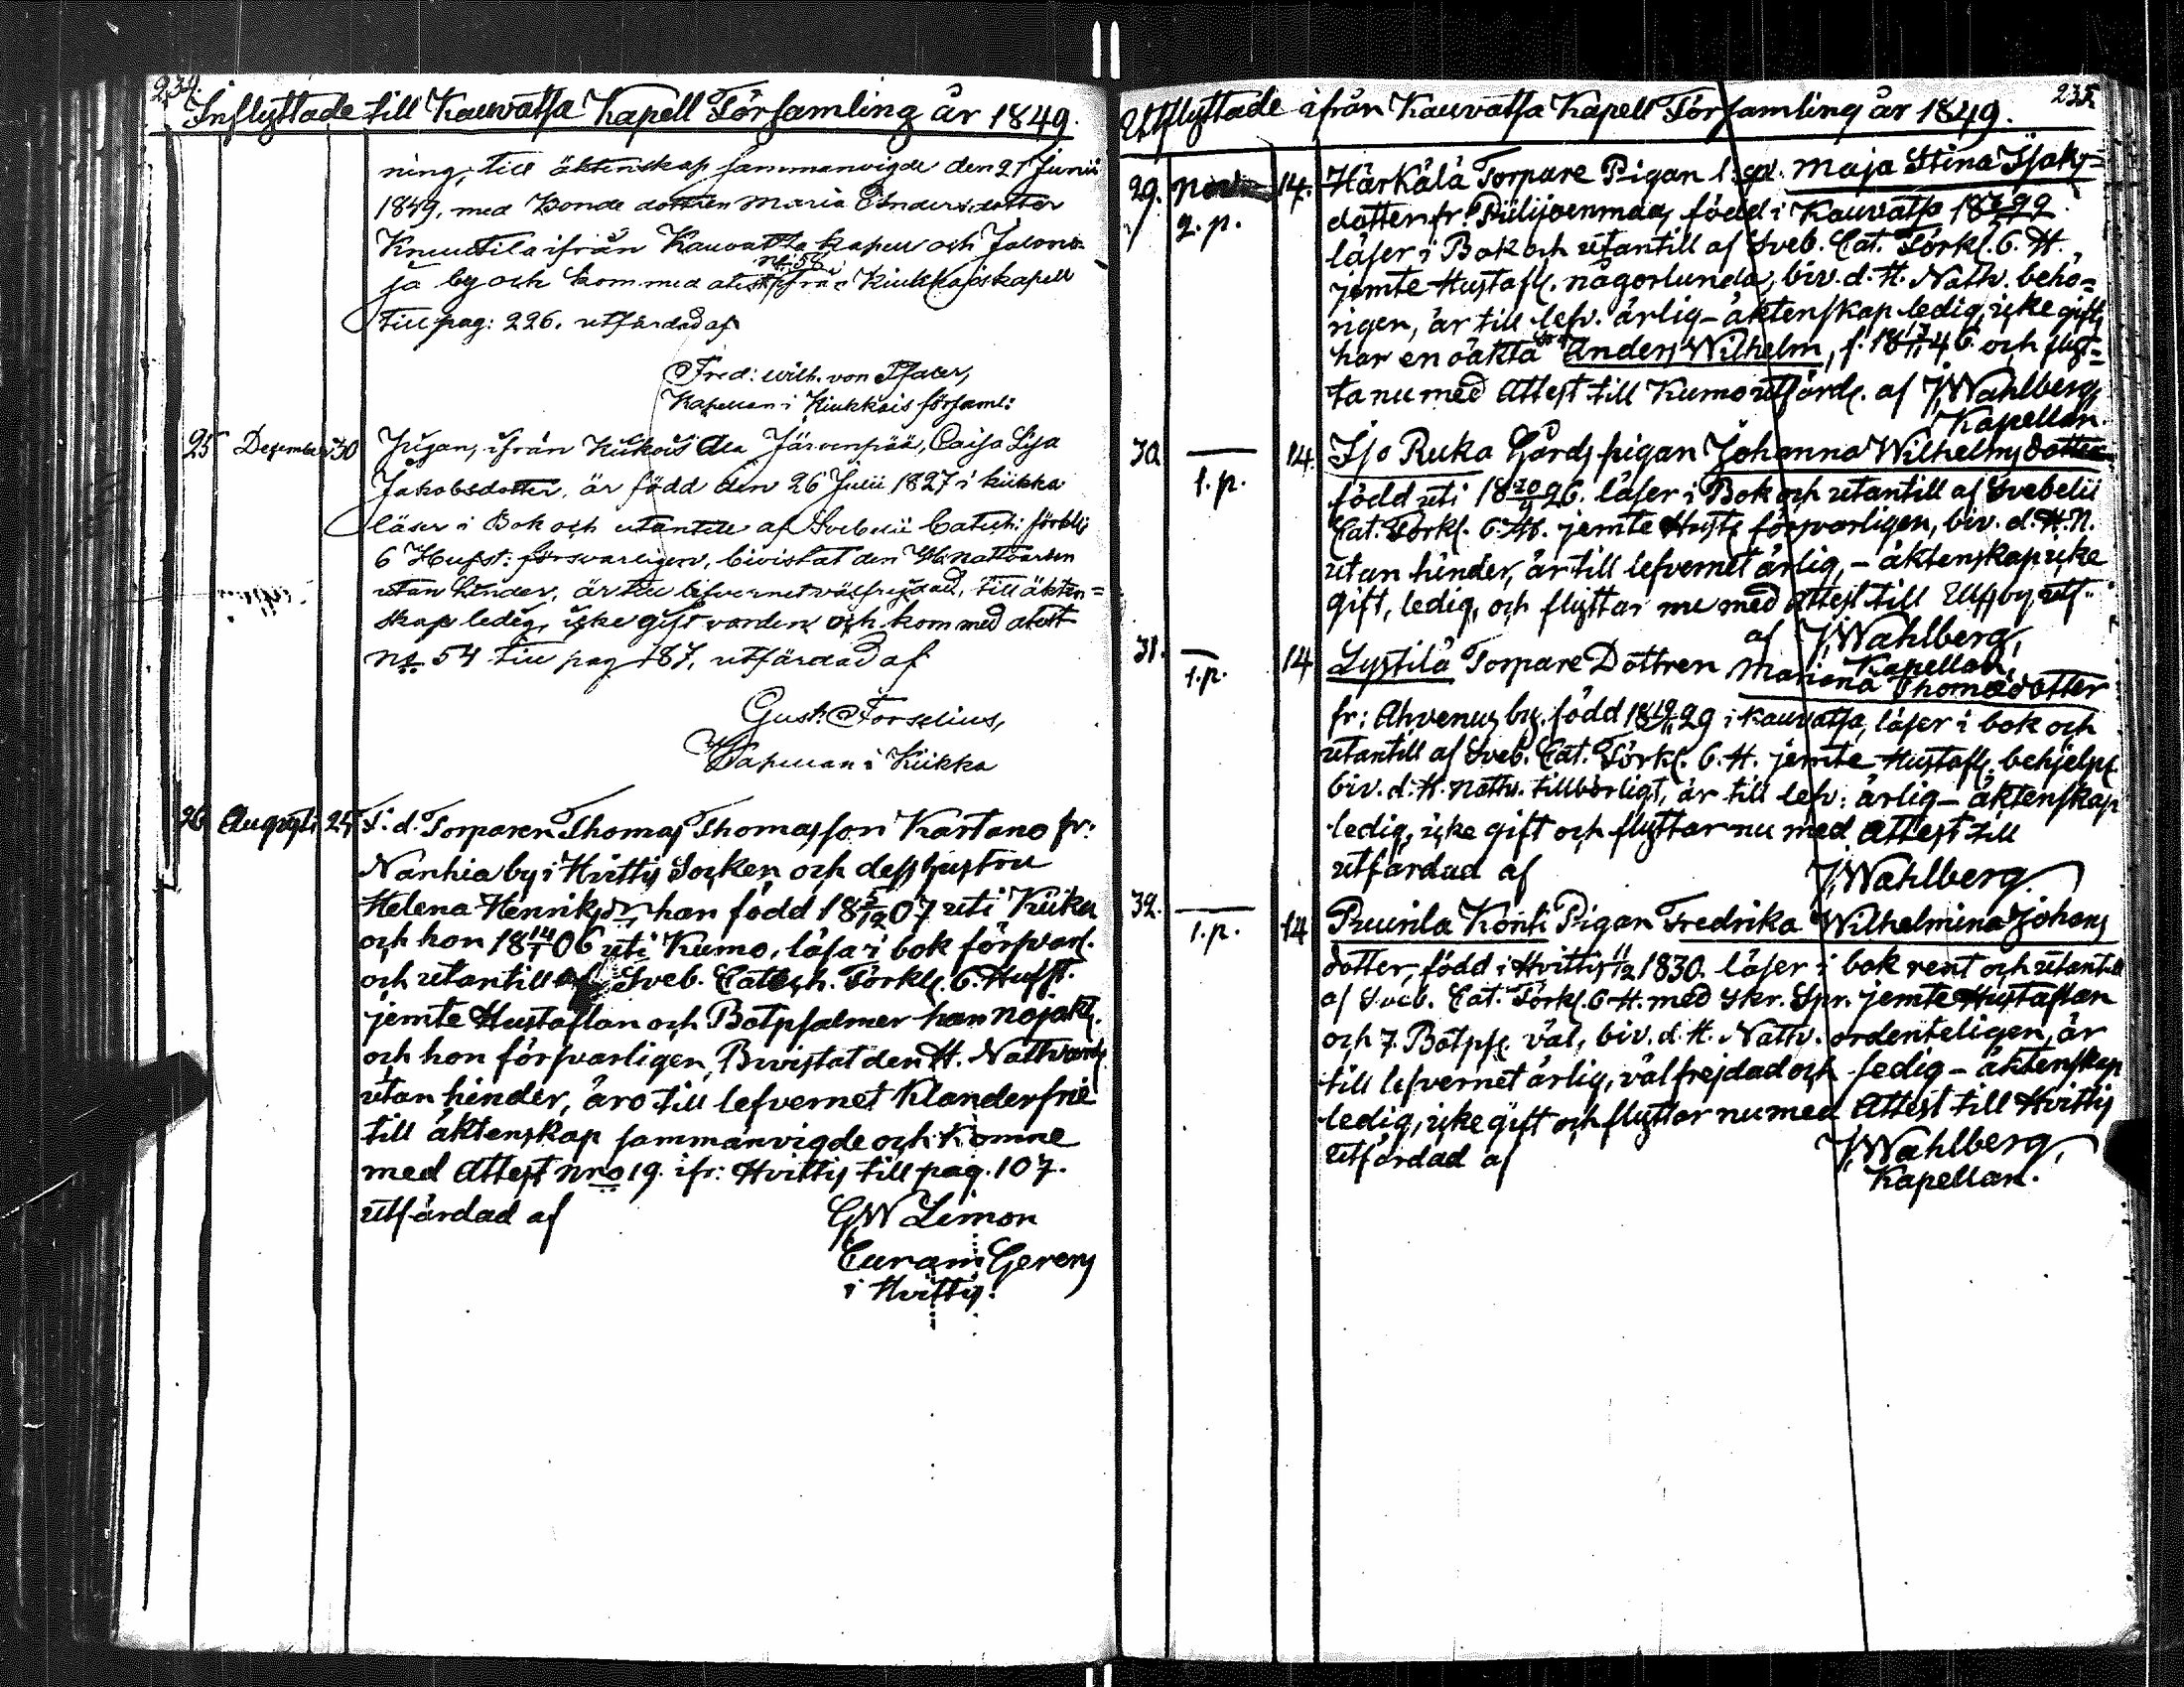 234.
Inflyttade till Kauvatsa Kapell Församling år 1849.
ning, till äktenskap sammanvigde den 21 Junii
1849, med Bonde dottren Maria Andersdotter
Knuutila ifrån Kauvatsa kapell och Jalono-
ja by och kom med atest No 58 ifrån Kiukkais kapell
till pag: 226. utfärdad af
Fred: Wilh. von Pfaler,
Kapellan i Kiukkais församl:
25 December 30 Pigan, ifrån Kiikois Ala Järvenpää, Caisa Lisa
Jakobsdotter, är född den 26 Julii 1827 i kiikka
läser i Bok och utantill af Svebelii Catech: förkl:
6 Hufst: försvarligen, bivistat den H. nattvarden
utan hinder, är till lefvernet välfrejdad, till äkten=
skap ledig, icke gift vorden och kom med atest
No 54 till pag 187, utfärdad af
Gust: Forselius,
Kapellan i Kiikka
26 Augusti 25 F. d. Torparen Thomas Thomasson Kartano fr:
Nanhia by i Hvittis Socken och dess hustru
Helena Henriksdr han född 18 5/12 07 uti Kiika
och hon 18 14/1 06 uti Kumo, läsa i bok försvarl.
och utantill af Sveb. Catech. Förkl. 6. Hufst.
jemte Hustaflan och Botpsalmer han nöjakt.
och hon försvarligen, Bivistat den H. Nattvard
utan hinder, äro till lefvernet Klanderfrie
till äktenskap sammanvigde och Komne
med Attest Nro 19. ifr: Hvittis till pag. 107.
utfärdad af
GW Limon
Curam Gerens
i Hvittis.
235.
Utflyttade ifrån Kauvatsa Kapell Församling år 1849.
29. 2. p. 14. Härkälä Torpare Pigan Maja Stina Isaks=
dotter fr född i Kauvatsa
läser i Bok och utantill af Sveb. Cat. Förkl. 6. H.
jemte Hustafl. någorlunda, biv. d. H. Nattv. behö=
rigen, är till lefv. ärlig – äktenskap ledig, icke gift,
har en oäkta Son Anders Wilhelm, f. och flyt=
ta nu med Attest till Kumo utfärd. af J. Wahlberg,
Kapellan.
30. — 1. p. 14. Iso Ruka Gårds pigan Johanna Wilhelmsdotter
född uti 18 20/9 26. läser i Bok och utantill af Svebelii
Cat. Förkl. 6. H. jemte Hust. försvarligen, biv. d. H. N.
utan hinder, är till lefvernet ärlig, – äktenskap icke
gift, ledig, och flyttar nu med Attest till Ulfsby, utf.
af J. Wahlberg,
Kapellan,
31. — 1. p. 14 Lystilä Torpare Dottren Mariena Thomedotter
fr: Ahvenus by, född i Kauvatsa, läser i bok och
utantill af Sveb. Cat. Förkl. 6. H. jemte Hustafl. behjelpl.
biv. d. H. Nattv. tillbörligt, är till lefv: ärlig – äktenskap
ledig, icke gift och flyttar nu med Attest till
utfärdad af J. Wahlberg.
32. — 1. p. 14 Puurila Kontti Pigan Fredrika Wilhelmina Johans
dotter, född i Hvittis 1830. läser i bok rent och utantill
af Sveb. Cat. Förkl. 6. H. med Skr. Spr. jemte Hustaflan
och 7. Botps. väl, biv. d. H. Nattv. ordenteligen, är
till lefvernet ärlig, välfrejdad och ledig – äktenskap
ledig, icke gift och flyttar nu med Attest till Hvittis
utfärdad af J. Wahlberg,
Kapellan.